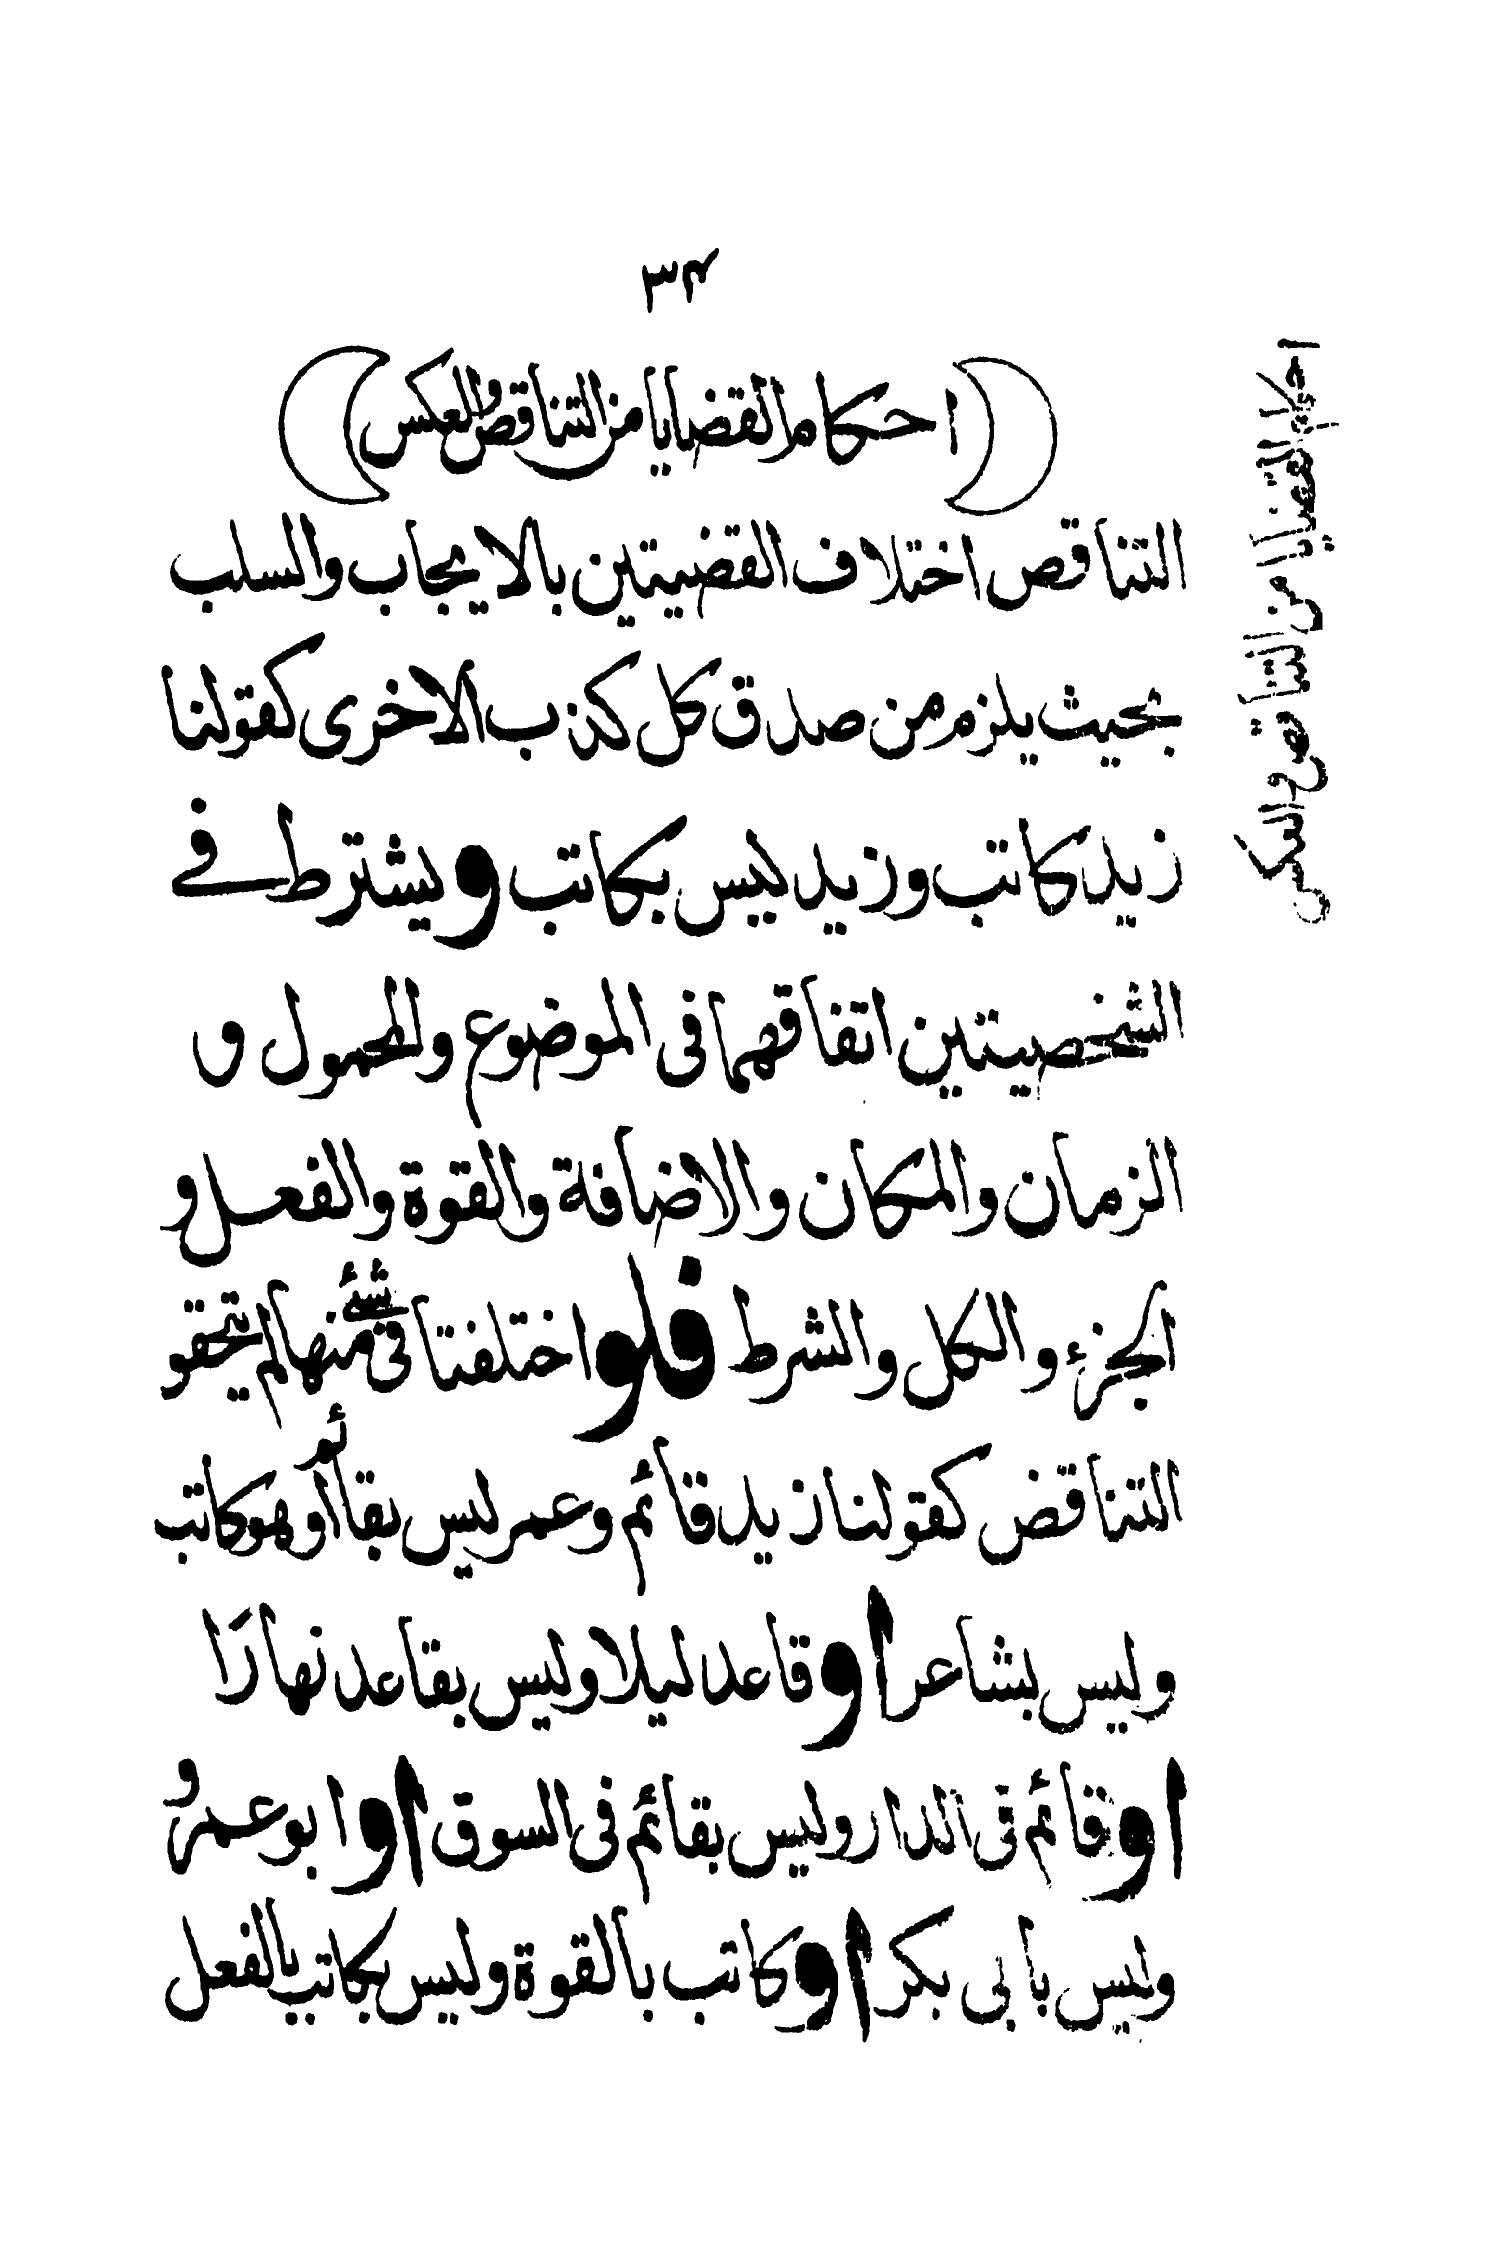 ٣٤
(احكام القضايا من التناقض والعكس)
التناقض اختلاف القضيتين بالايجاب والسلب
بحيث يلزم من صدق كل كذب الاخرى كقولنا
زيد كاتب وزيد ليس بكاتب ويشترط في
الشخصيتين اتفاقهما فى الموضوع والمحمول و
الزمان والمكان والاضافة والقوة والفعل و
الجزء والكل والشرط فلو اختلفتا فى شئ منها لم يتحقق
التناقض كقولنا زيد قائم وعمر ليس بقائم او هو كاتب
وليس بشاعر او قاعد ليلا وليس بقاعد نهارًا
او قائم فى الدار وليس بقائم فى السوق او ابو عمرو
وليس بابى بكر او كاتب بالقوة وليس بكاتب بالفعل
احكام القضايا من التناقض والعكس